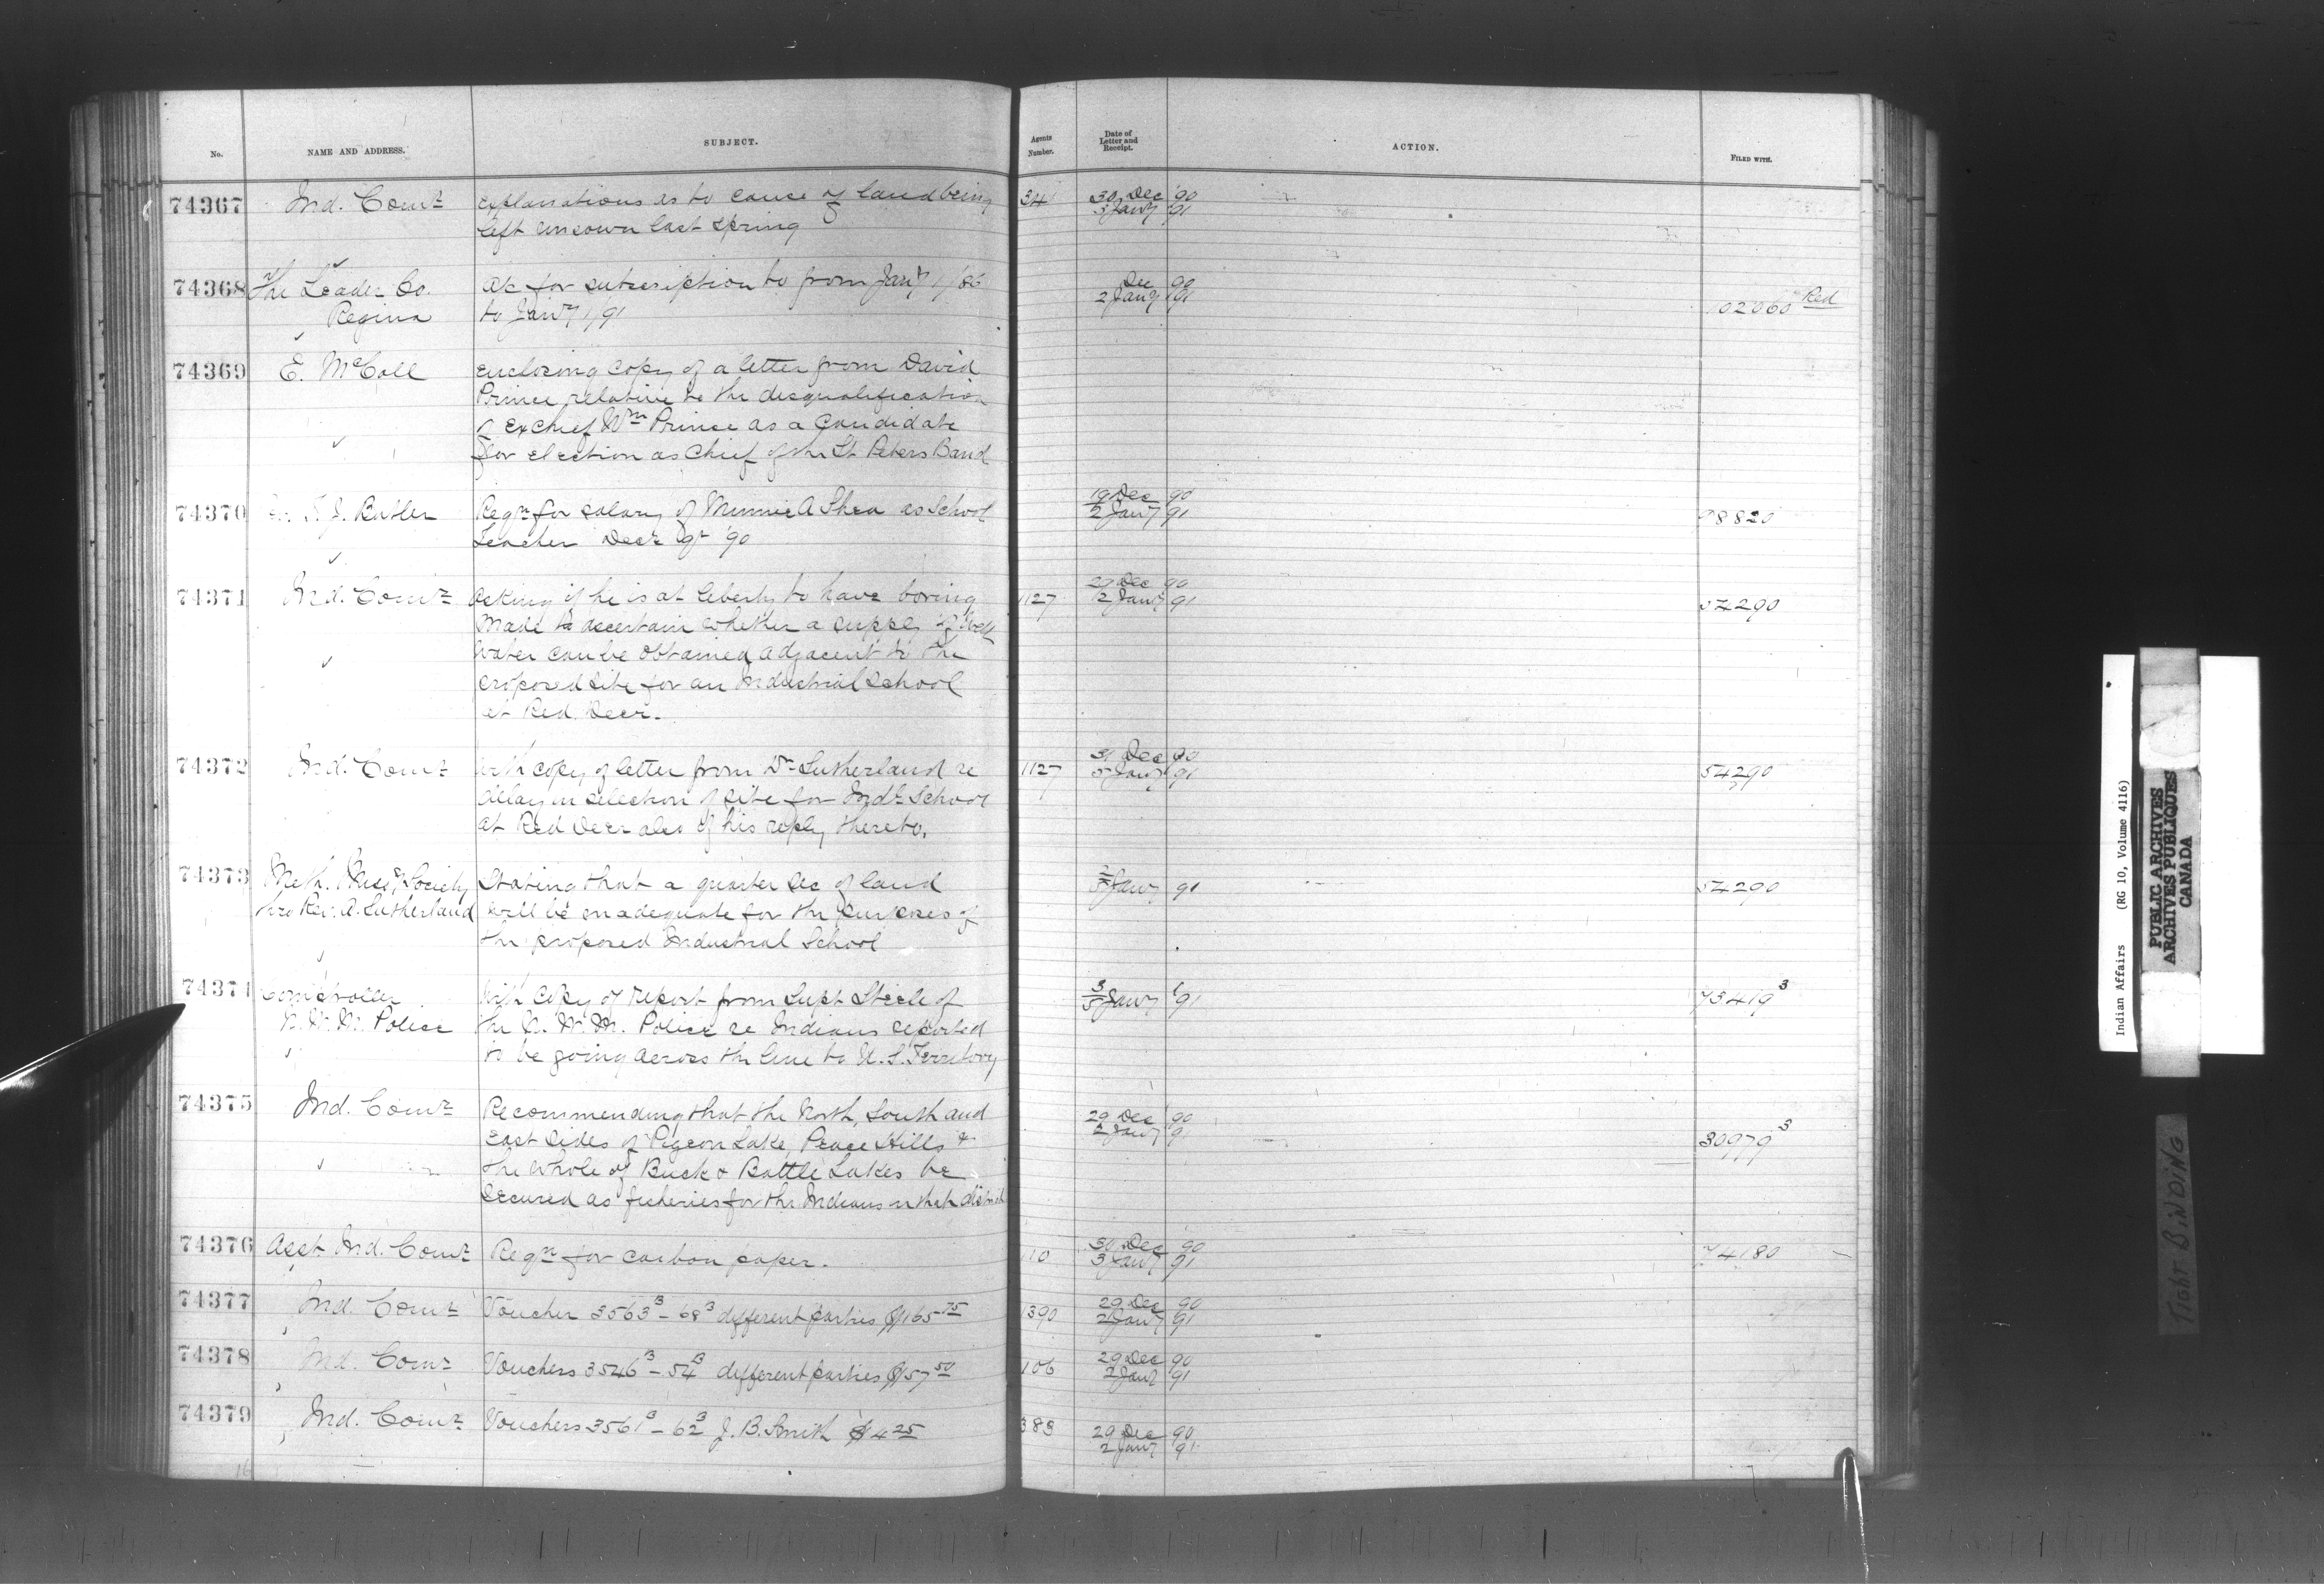 No. NAME AND ADDRESS. SUBJECT. Agents Number. Date of Letter and Receipt. ACTION. FILED WITH.
74367 Ind. Comr Explanations as to cause of land being 341 30 Dec '90
left unsown last spring 3 Jany '91
74368 The Leader Co. a/c for subscription to from Jany 1/86 Dec 90
Regina to Jany 1/91 2 Jany 91 102060 Red
74369 E. McColl Enclosing copy of a letter from David
Prince relative to the disqualification
of ex Chief Wm Prince as a Candidate
for election as Chief of the St Peters Band
74370 T. J. Butler Reqn for salary of Minnie A Shea as School 19 Dec 90
Teacher Decr qr '90 2 Jany 91 98820
74371 Ind. Comr Asking if he is at liberty to have boring 1127 29 Dec 90
made to ascertain whether a supply of well 2 Jany 91 54290
water can be obtained adjacent to the
proposed site for an Industrial School
at Red Deer.
74372 Ind. Comr With copy of letter from Dr Sutherland re 1127 31 Dec 90
delay in selection of site for Indl School 5 Jany 91 54290
at Red Deer also of his reply thereto.
74373 Meth. Missy Society Stating that a quarter Sec of land 2/5 Jany 91 54290
thro Rev. A. Sutherland will be inadequate for the purposes of
the proposed Industrial School
74374 Comptroller With copy of report from Supt Steele of 3/5 Jany '91 73419 3
N. W. M. Police the N. W. M. Police re Indians reported
to be going across the line to U. S. Territory
74375 Ind. Comr Recommending that the North, South and 29 Dec 90
East sides of Pigeon Lake, Peace Hills & 2 Jany 91 30979 3
the whole of Buck & Battle Lakes be
secured as fisheries for the Indians in that district
74376 Asst. Ind. Comr Reqn for carbon paper. 110 30 Dec 90
3 Jany 91 74180
74377 Ind. Comr Voucher 3563 B - 68 B different parties $165 75 1390 29 Dec 90
2 Jany 91
74378 Ind. Comr Vouchers 3546 B - 54 B different parties $157 50 106 29 Dec 90
2 Jany 91
74379 Ind. Comr Vouchers 3561 B - 62 B J. B. Smith $4 25 383 29 Dec 90
2 Jany 91
Indian Affairs (RG 10, Volume 4116)
PUBLIC ARCHIVES
ARCHIVES PUBLIQUES
CANADA
TIGHT BINDING